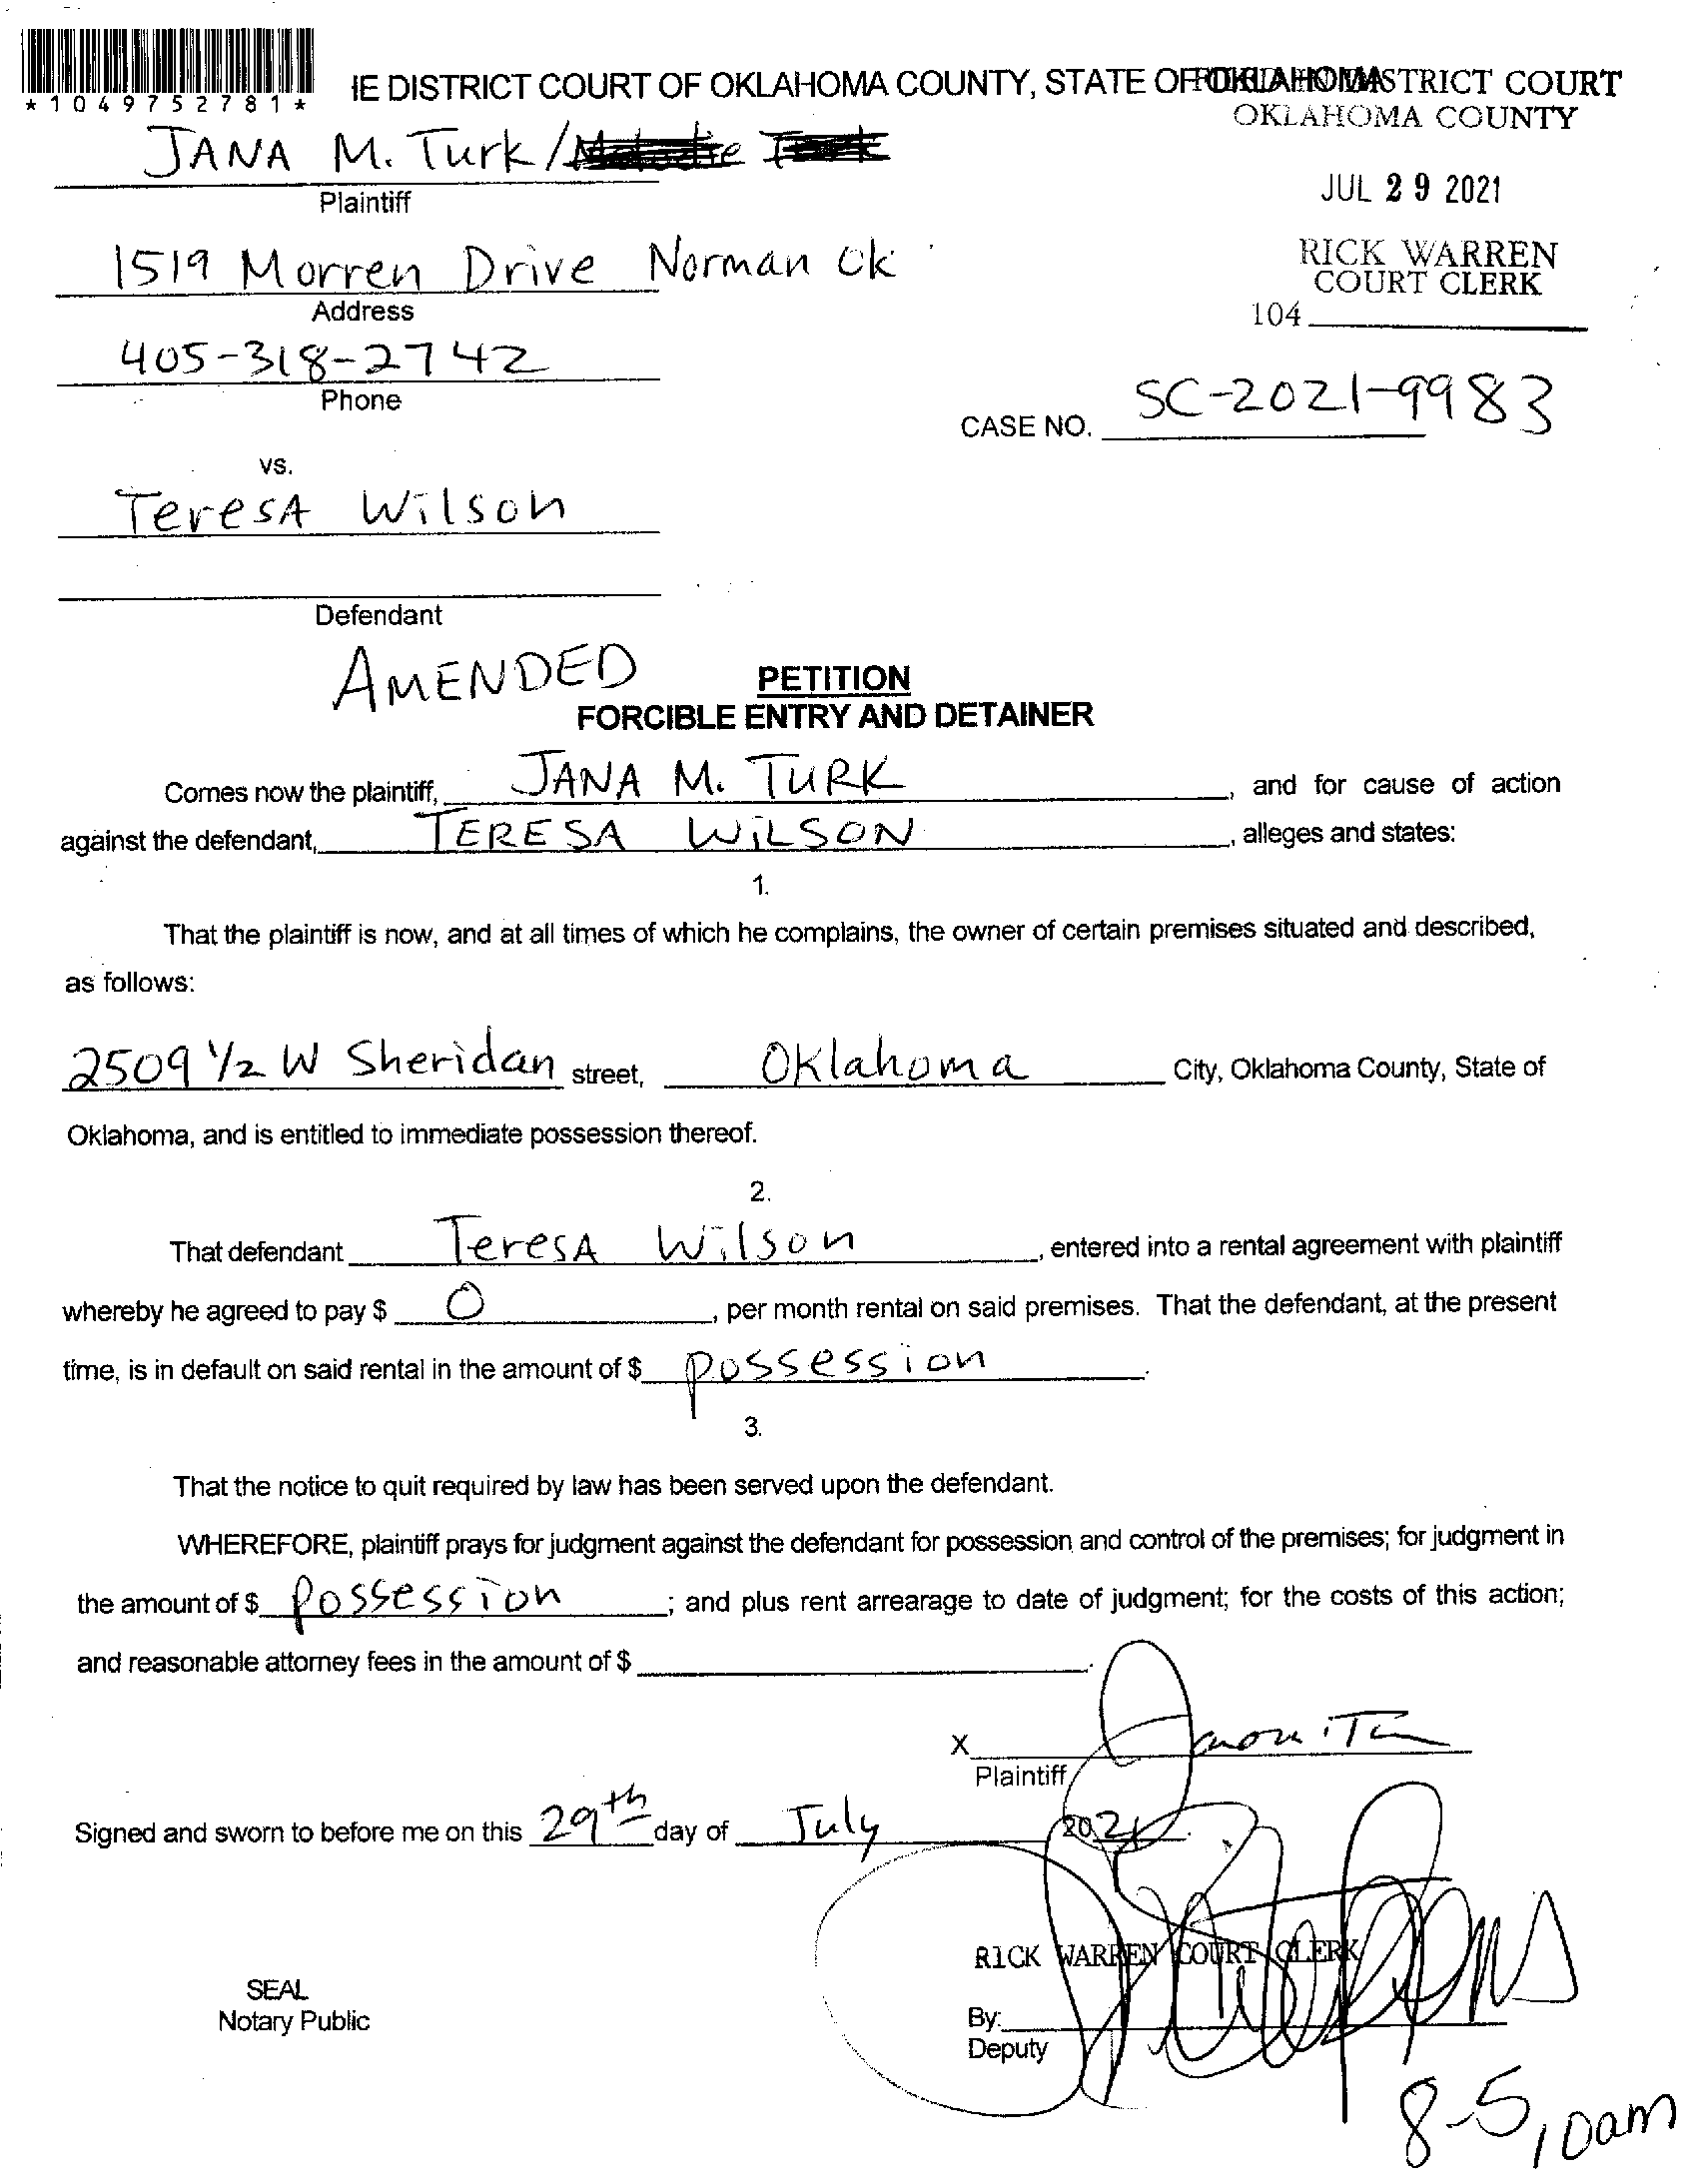 *1049752781*
IE DISTRICT COURT OF OKLAHOMA COUNTY, STATE OF OKLAHOMA
FILED IN DISTRICT COURT
OKLAHOMA COUNTY
JANA M. Turk /
Plaintiff
JUL 29 2021
1519 Morren Drive Norman Ok
Address
RICK WARREN
COURT CLERK
104
405-318-2742
Phone
CASE NO. SC-2021-9983
vs.
TeresA Wilson
Defendant
AMENDED
PETITION
FORCIBLE ENTRY AND DETAINER
Comes now the plaintiff, JANA M. TURK, and for cause of action
against the defendant, TERESA WiLSON, alleges and states:
1.
That the plaintiff is now, and at all times of which he complains, the owner of certain premises situated and described,
as follows:
2509 1/2 W Sheridan street, Oklahoma City, Oklahoma County, State of
Oklahoma, and is entitled to immediate possession thereof.
2.
That defendant TeresA Wilson, entered into a rental agreement with plaintiff
whereby he agreed to pay $ 0, per month rental on said premises. That the defendant, at the present
time, is in default on said rental in the amount of $ possession.
3.
That the notice to quit required by law has been served upon the defendant.
WHEREFORE, plaintiff prays for judgment against the defendant for possession and control of the premises; for judgment in
the amount of $ Possession; and plus rent arrearage to date of judgment; for the costs of this action;
and reasonable attorney fees in the amount of $ .
X
Plaintiff
Signed and sworn to before me on this 29th day of July 2021.
RICK WARREN COURT CLERK
SEAL
Notary Public
By:
Deputy
8-5, 10am